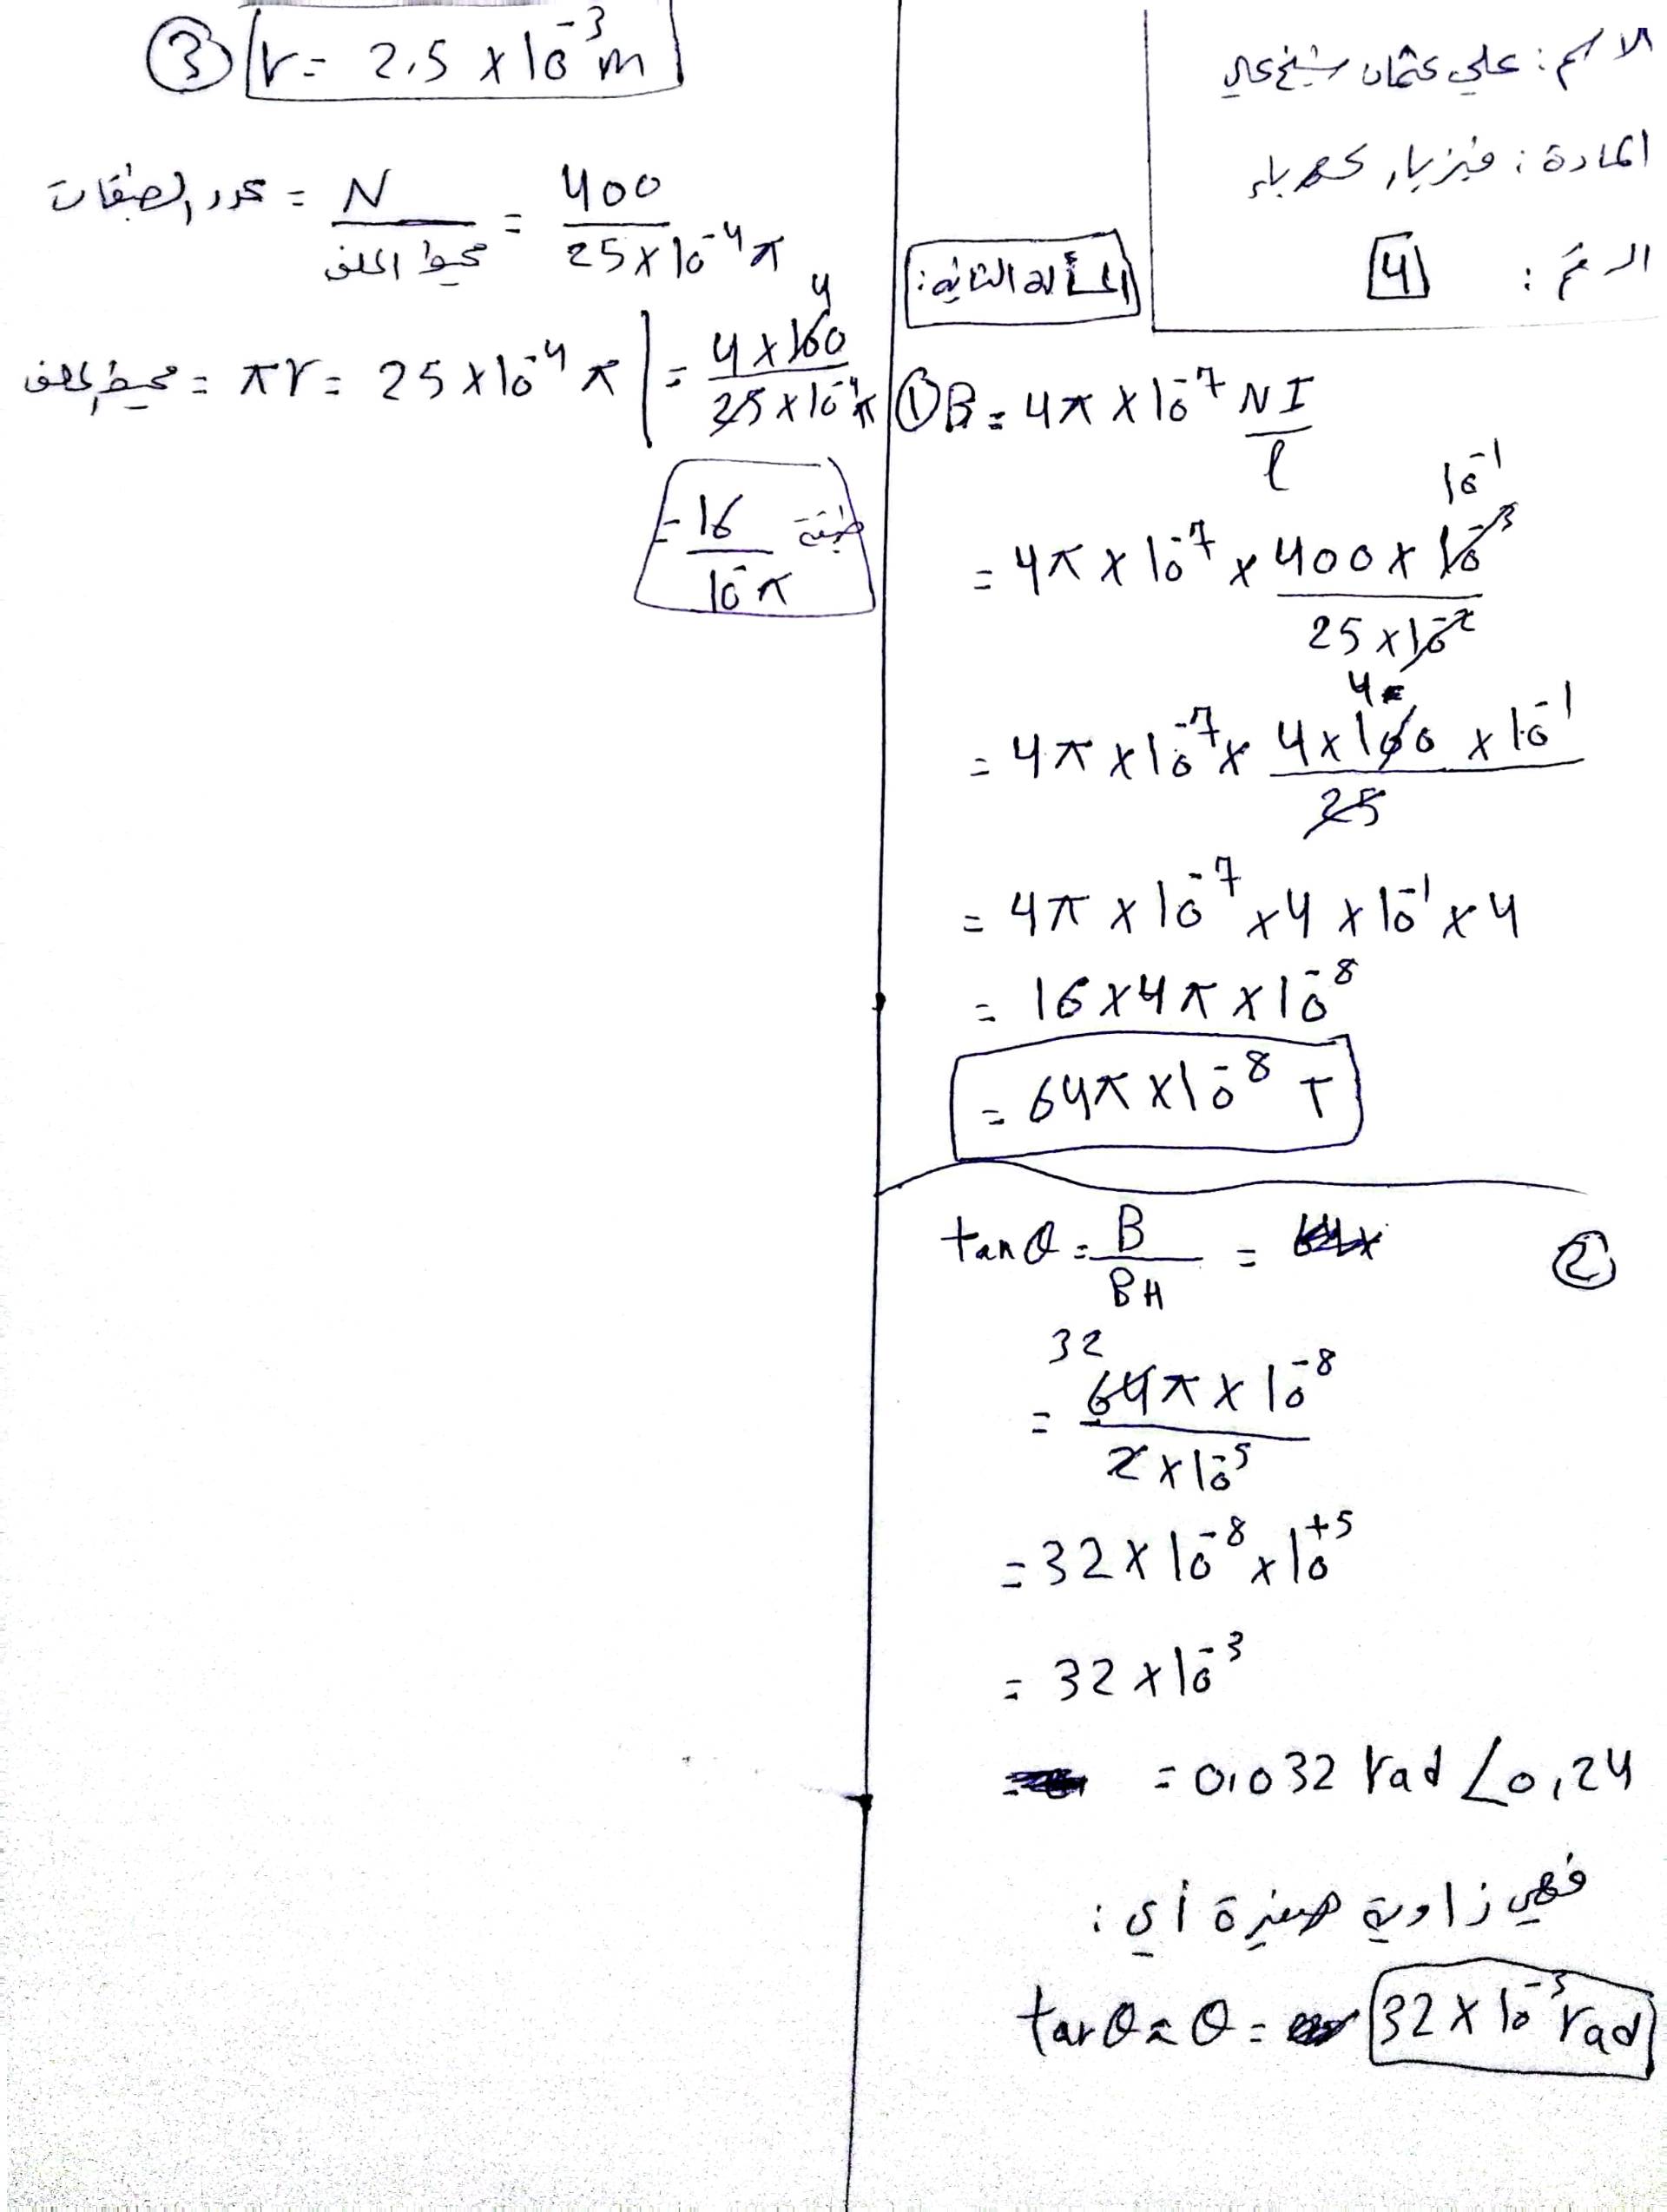 الاسم: علي عثمان شيخ علي
المادة: فيزياء كهرباء
الرقم: 4
المسألة الثانية:
① B = 4π × 10^-7 NI / l
= 4π × 10^-7 × 400 × 10^-3 / 25 × 10^-2 10^-1
= 4π × 10^-7 × 4 × 100 × 10^-1 / 25 4
= 4π × 10^-7 × 4 × 10^-1 × 4
= 16 × 4π × 10^-8
= 64π × 10^-8 T
② tanθ = B / BH =
= 64π × 10^-8 / 2 × 10^-5 32
= 32 × 10^-8 × 10^+5
= 32 × 10^-3
= 0,032 rad < 0,24
فهي زاوية صغيرة أي:
tanθ ≈ θ = 32 × 10^-3 rad
③ r = 2,5 × 10^-3 m
عدد الطبقات = N / محيط الملف = 400 / 25 × 10^-4 π
محيط الملف = πr = 25 × 10^-4 π | = 4 × 100 / 25 × 10^-4 π 4
= 16 / 10^- π طبقة